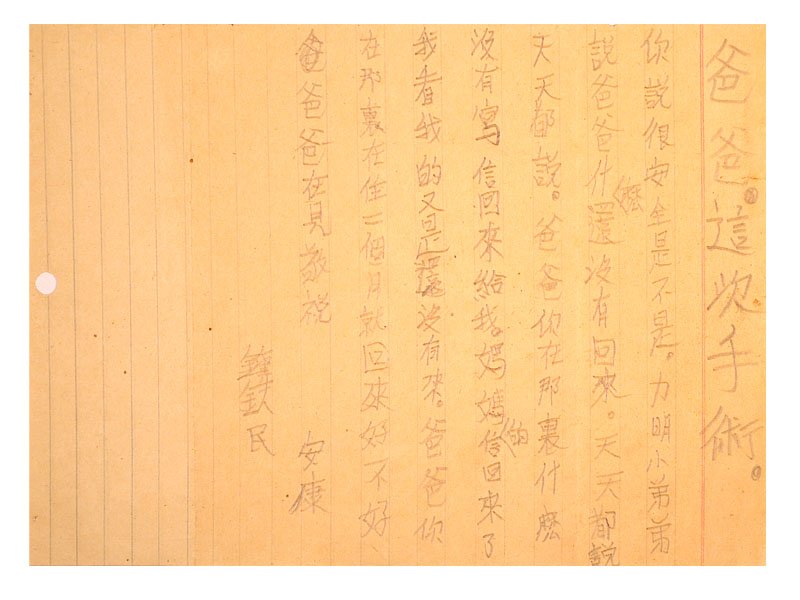 爸爸。這次手術。
你說很安全是不是。力明小弟弟
說爸爸什麼還沒有回來。天天都說
天天都說。爸爸你在那裏什麼
沒有寫信回來給我。媽媽的信回來了
我看我的又是還沒有來。爸爸你
在那裏在住二個月就回來好不好
爸爸爸在見敬祝
安康
民